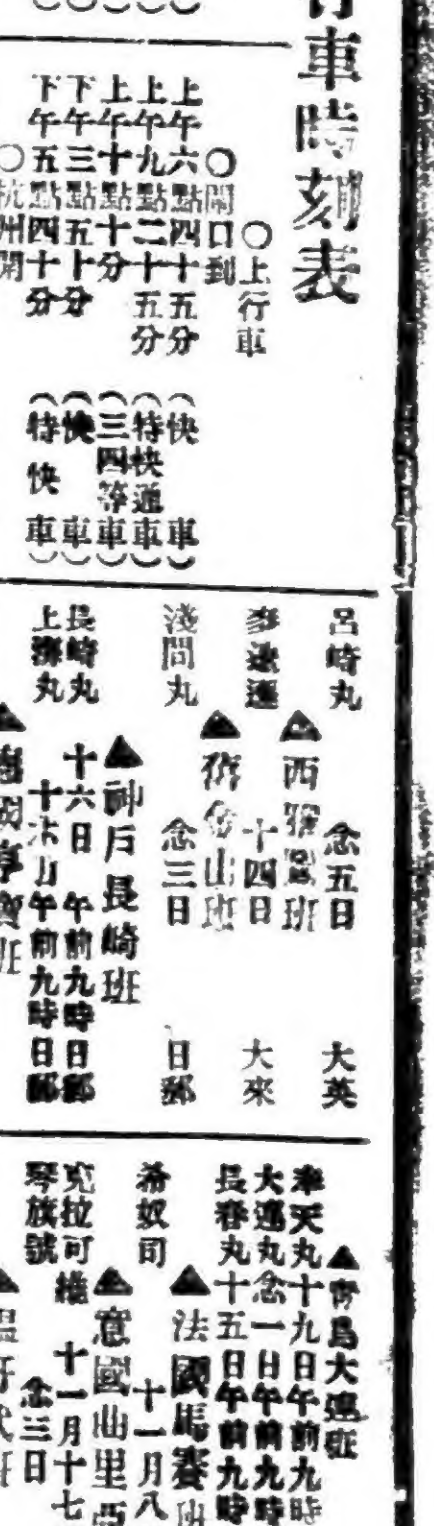 行車時刻表
○上行車
○閘口到
上午六點四十五分 (快車)
上午九點二十五分 (特快通車)
上午十點十分 (三四等車)
下午三點五十分 (快車)
下午五點四十分 (特快車)
○杭州開
呂崎丸 念五日 大英
▲西雅圖班
十四日 大來
▲舊金山班
淺間丸 念三日 日郵
▲神戶長崎班
長崎丸 十六日 午前九時 日郵
上海丸 午前九時 日郵
▲青島大連班
奉天丸 十九日午前九時
大連丸 念一日午前九時
長春丸 十五日午前九時
▲法國馬賽班
希奴司 十一月八
▲意國
克拉可 十一月十七
琴旗號 念三日